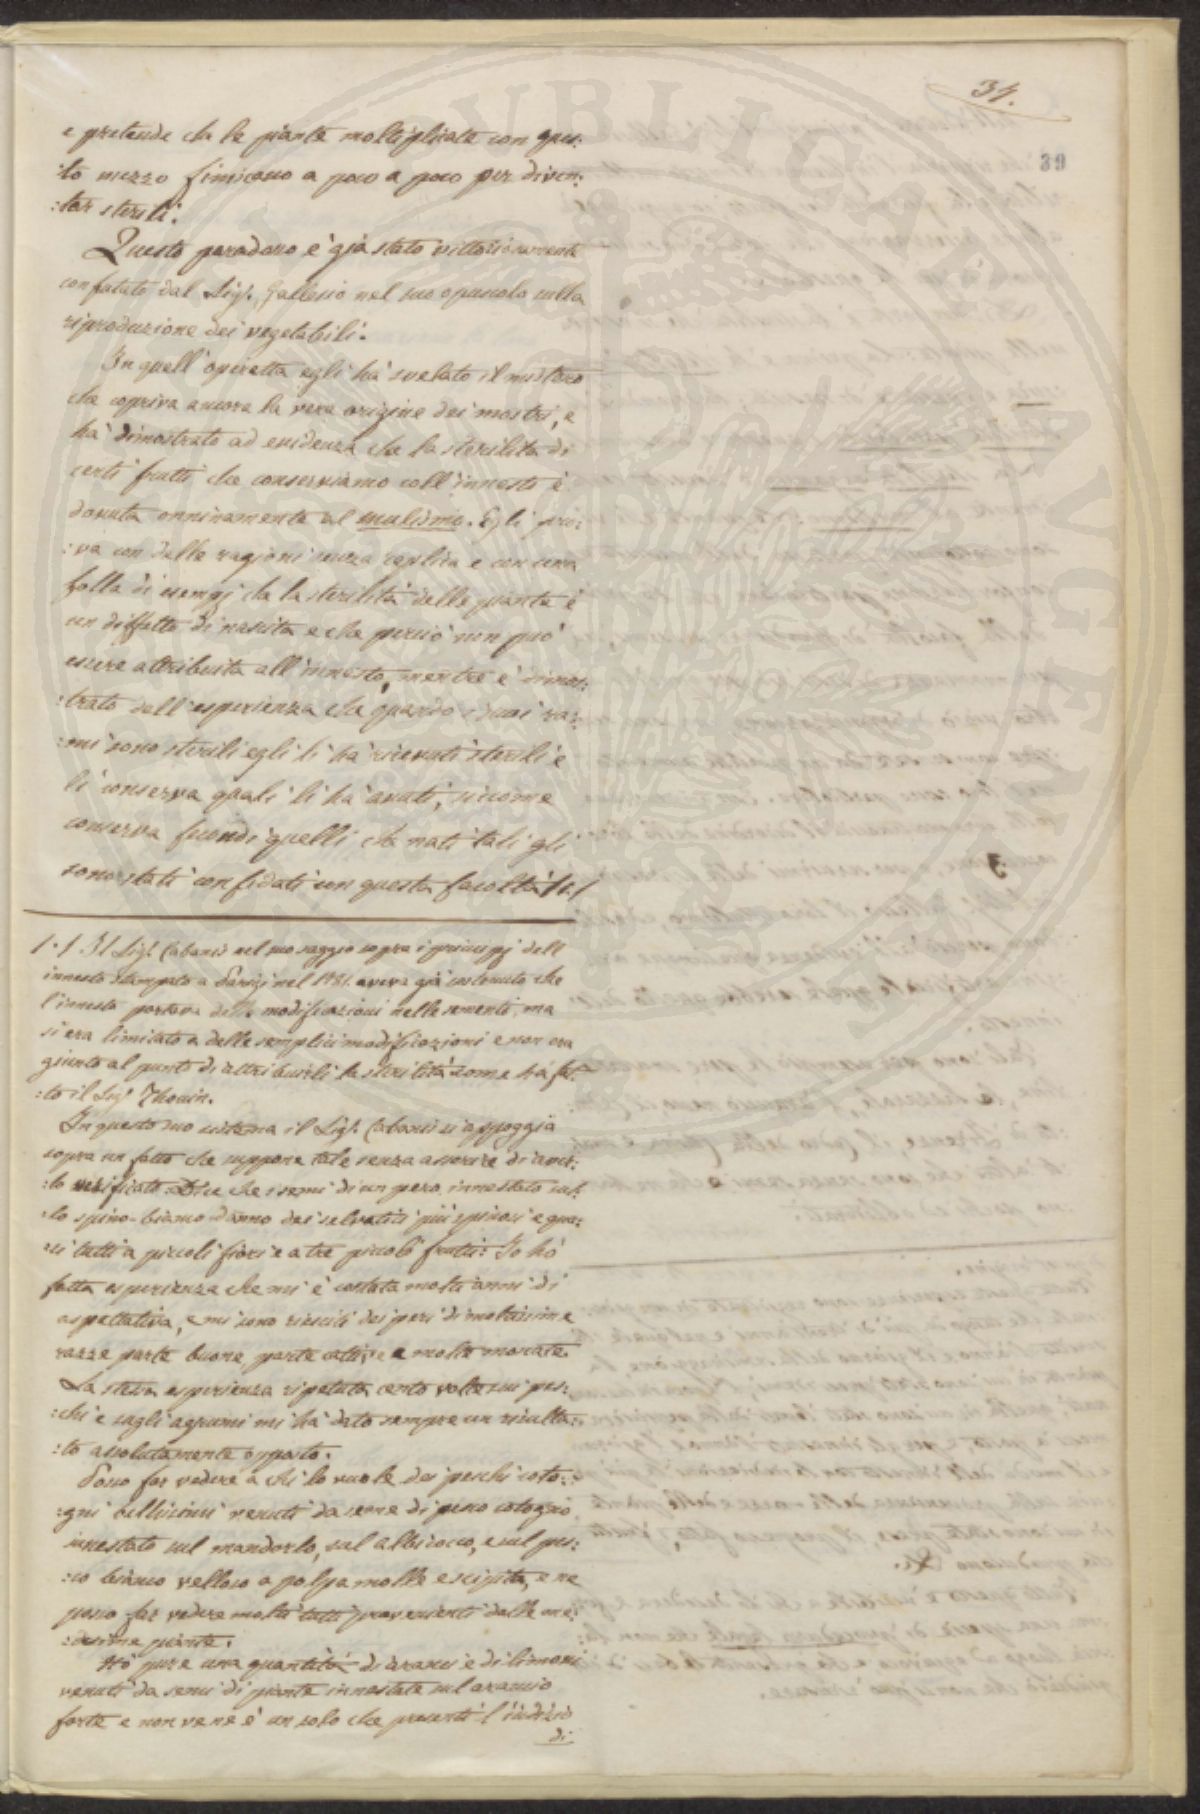 34.
39
e pretende che le piante moltiplicate con ques:
:to mezzo finiscono a poco a poco per diven:
:tar sterili.
Questo paradosso è già stato vittoriosamente
confutato dal Sigr. Gallesio nel suo opuscolo sulla
riproduzione dei vegetabili.
In quell'operetta egli hà svelato il mistero
che copriva ancora la vera origine dei mostri, e
hà dimostrato ad evidenza che la sterilità di
certi frutti che conserviamo coll'innesto è
dovuta onninamente al mulismo. Egli pro:
:va con delle ragioni senza replica e con una
folla di esempj che la sterilità delle piante è
un diffetto di nascita e che perciò non può
essere attribuita all'innesto, mentre è dimos:
:trato dall'esperienza che quando i suoi ra:
:mi sono sterili egli li hà ricevuti sterili e
li conserva quali li hà avuti, siccome
conserva fecondi quelli che nati tali gli
sono stati confidati con questa facoltà /1./
/1./ Il Sigr. Cabanis nel suo saggio sopra i principj dell
innesto stampato a Parigi nel 1781. aveva già sostenuto che
l'innesto portava delle modificazioni nelle sementi, ma
si era limitato a delle semplici modificazioni e non era
giunto al punto di attribuirli la sterilità come ha fat:
:to il Sigr. Thouin.
In questo suo sistema il Sigr. Cabanis si appoggia
sopra un fatto che suppone tale senza asserire di aver:
:lo verificato. Dice che i semi di un pero innestato sul:
:lo spino-bianco danno dei selvatici più spinosi e qua:
:si tutti a piccoli fiori e a tre piccoli frutti. Io hò
fatta esperienza che mi è costata molti anni di
aspettativa, e mi sono riesciti dei peri di moltissime
razze parte buone, parte cattive e molte moscate.
La stessa esperienza ripetuta cento volte sui pes:
:chi e sugli agrumi mi hà dato sempre un risulta:
:to assolutamente opposto.
Posso far vedere a chi lo vuole dei peschi coto:
:gni bellissimi venuti da seme di pesco cotogno
innestato sul mandorlo, sul albicocco, e sul pes:
:co bianco velloso a polpa molle e scipita, e ne
posso far vedere molti tutti provenienti dalle me:
:desime piante.
Hò pure una quantità di aranci e di limoni
venuti da semi di piante innestate sul arancio
forte e non ve ne è un solo che presenti l'indizio
di